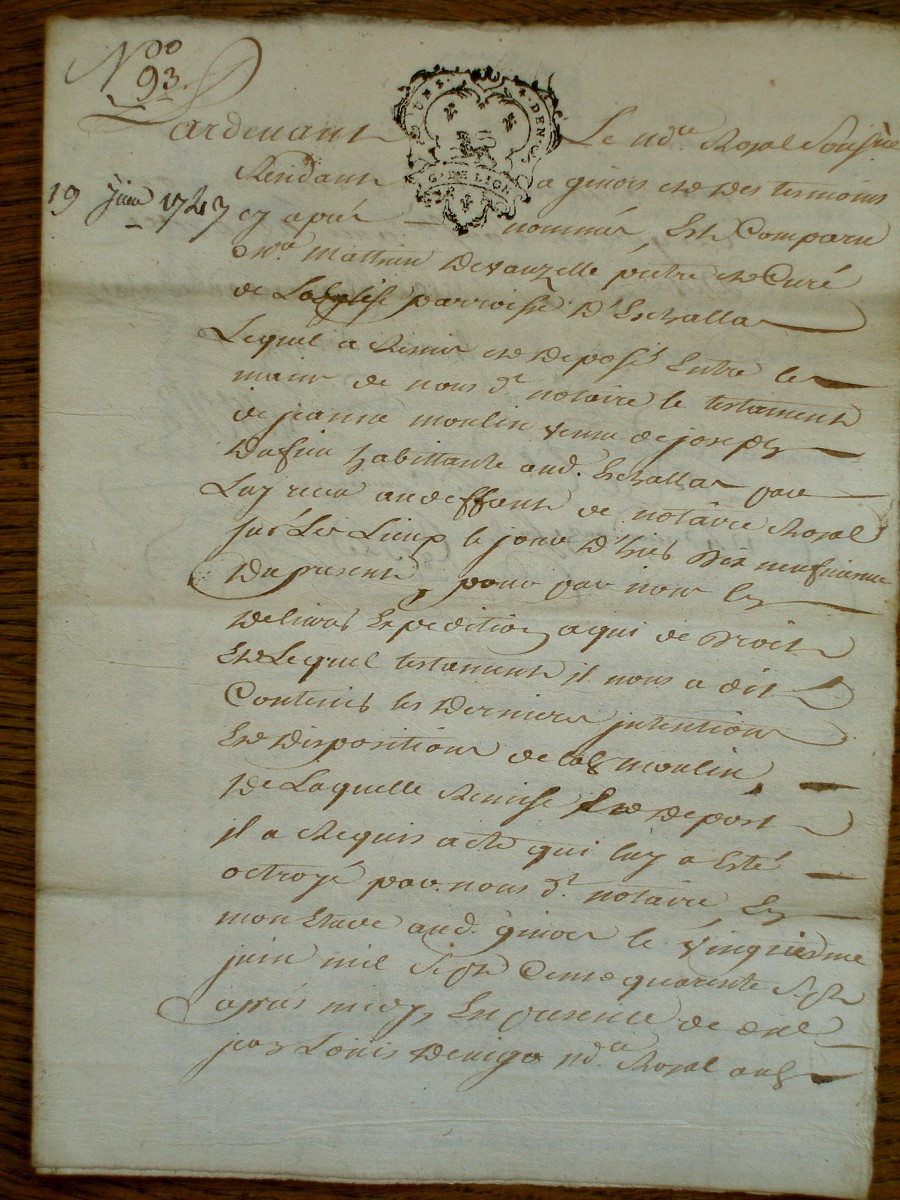 N.oo
93.
19 juin 1747
Pardevant Le no.re Royal Soussigné
Residant a givors et des tesmoins
cy aprés nommés Est Comparu
m.re mathieu Devauzelle prêtre et Curé
de L'eglise parroissi D'Eschallas
Lequel a Remis et deposé Entre les
mains de nous d.t notaire le testament
de jeanne moulin veuve de joseph
habittante aud. Eschallas par
Luy receu au deffaut de notaire Royal
sur les Lieux le jour D'hier Dix neufvieme
Du present pour par nous En
delivrer Expedition a qui de Droit
Et Lequel testament il nous a dit
Contenir les dernieres intentions
Et dispositions de lad. moulin,
de Laquelle Remise Et depost
il a Requis acte qui luy a Esté
octroyé par nous d.t notaire En
mon Etude aud. givors le vingtieme
juin mil Sept Cent quarente Sept
aprés midy, En presence de
Louis no.re Royal aud.
G. DE LION